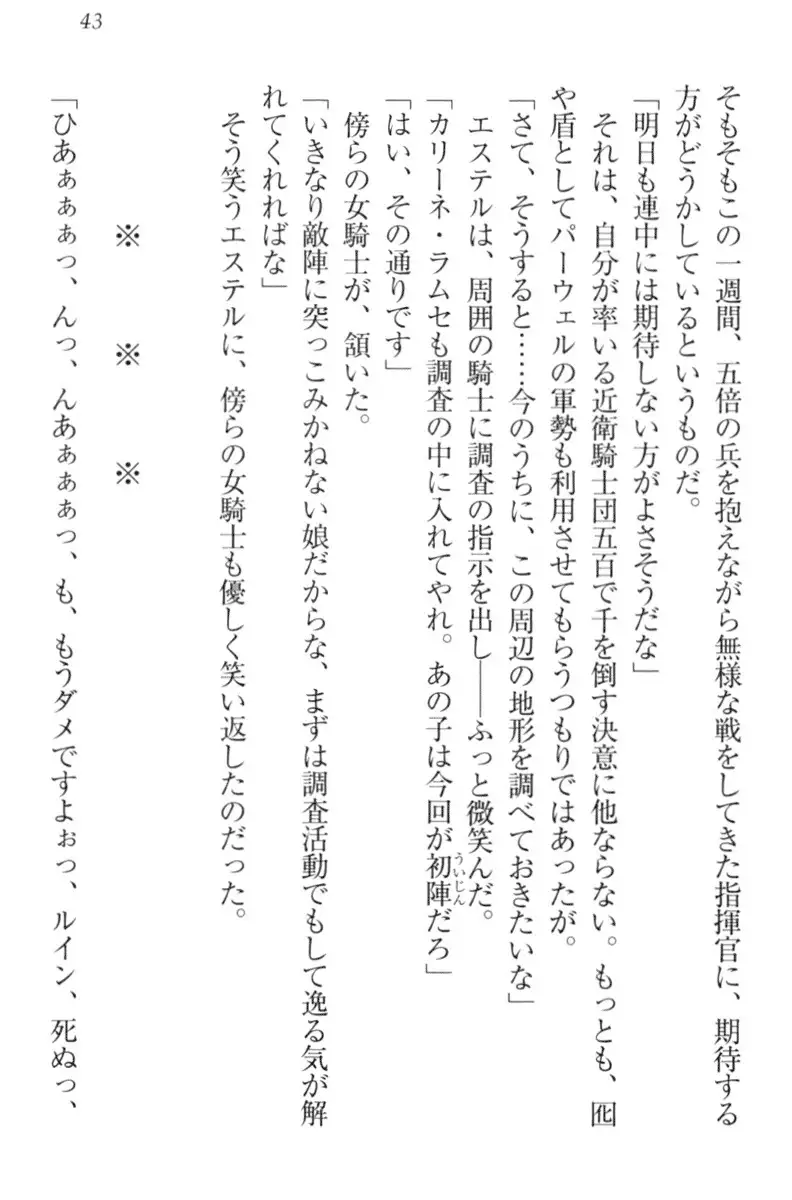 43
そもそもこの一週間、五倍の兵を抱えながら無様な戦をしてきた指揮官に、期待する
方がどうかしているというものだ。
「明日も連中には期待しない方がよさそうだな」
それは、自分が率いる近衛騎士団五百で千を倒す決意に他ならない。もっとも、囮
や盾としてパーウェルの軍勢も利用させてもらうつもりではあったが。
「さて、そうすると……今のうちに、この周辺の地形を調べておきたいな」
エステルは、周囲の騎士に調査の指示を出し――ふっと微笑んだ。
「カリーネ・ラムセも調査の中に入れてやれ。あの子は今回が初陣だろ」
ういじん
「はい、その通りです」
傍らの女騎士が、頷いた。
「いきなり敵陣に突っこみかねない娘だからな、まずは調査活動でもして逸る気が解
れてくれればな」
そう笑うエステルに、傍らの女騎士も優しく笑い返したのだった。
※　※　※
「ひあぁぁぁっ、んっ、んあぁぁぁっ、も、もうダメですよぉっ、ルイン、死ぬっ、